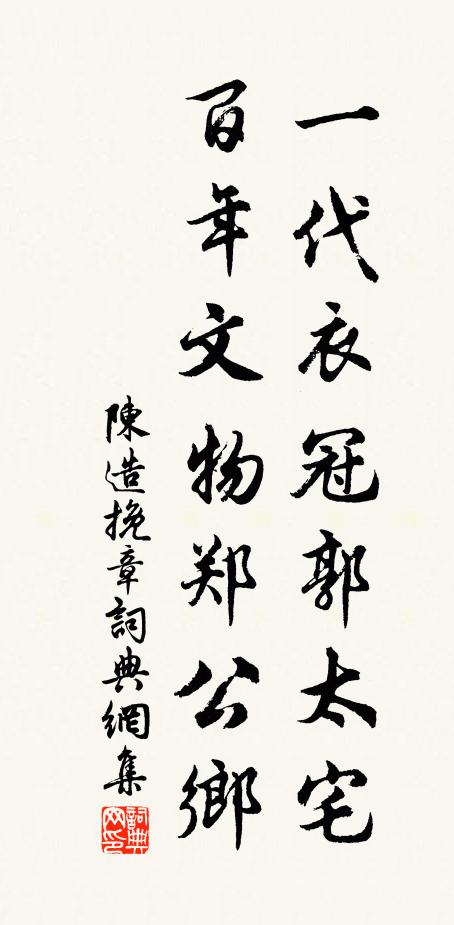 一代衣冠郭太宅
百年文物郑公鄉
陳造挽章詞典網集
詞典网印